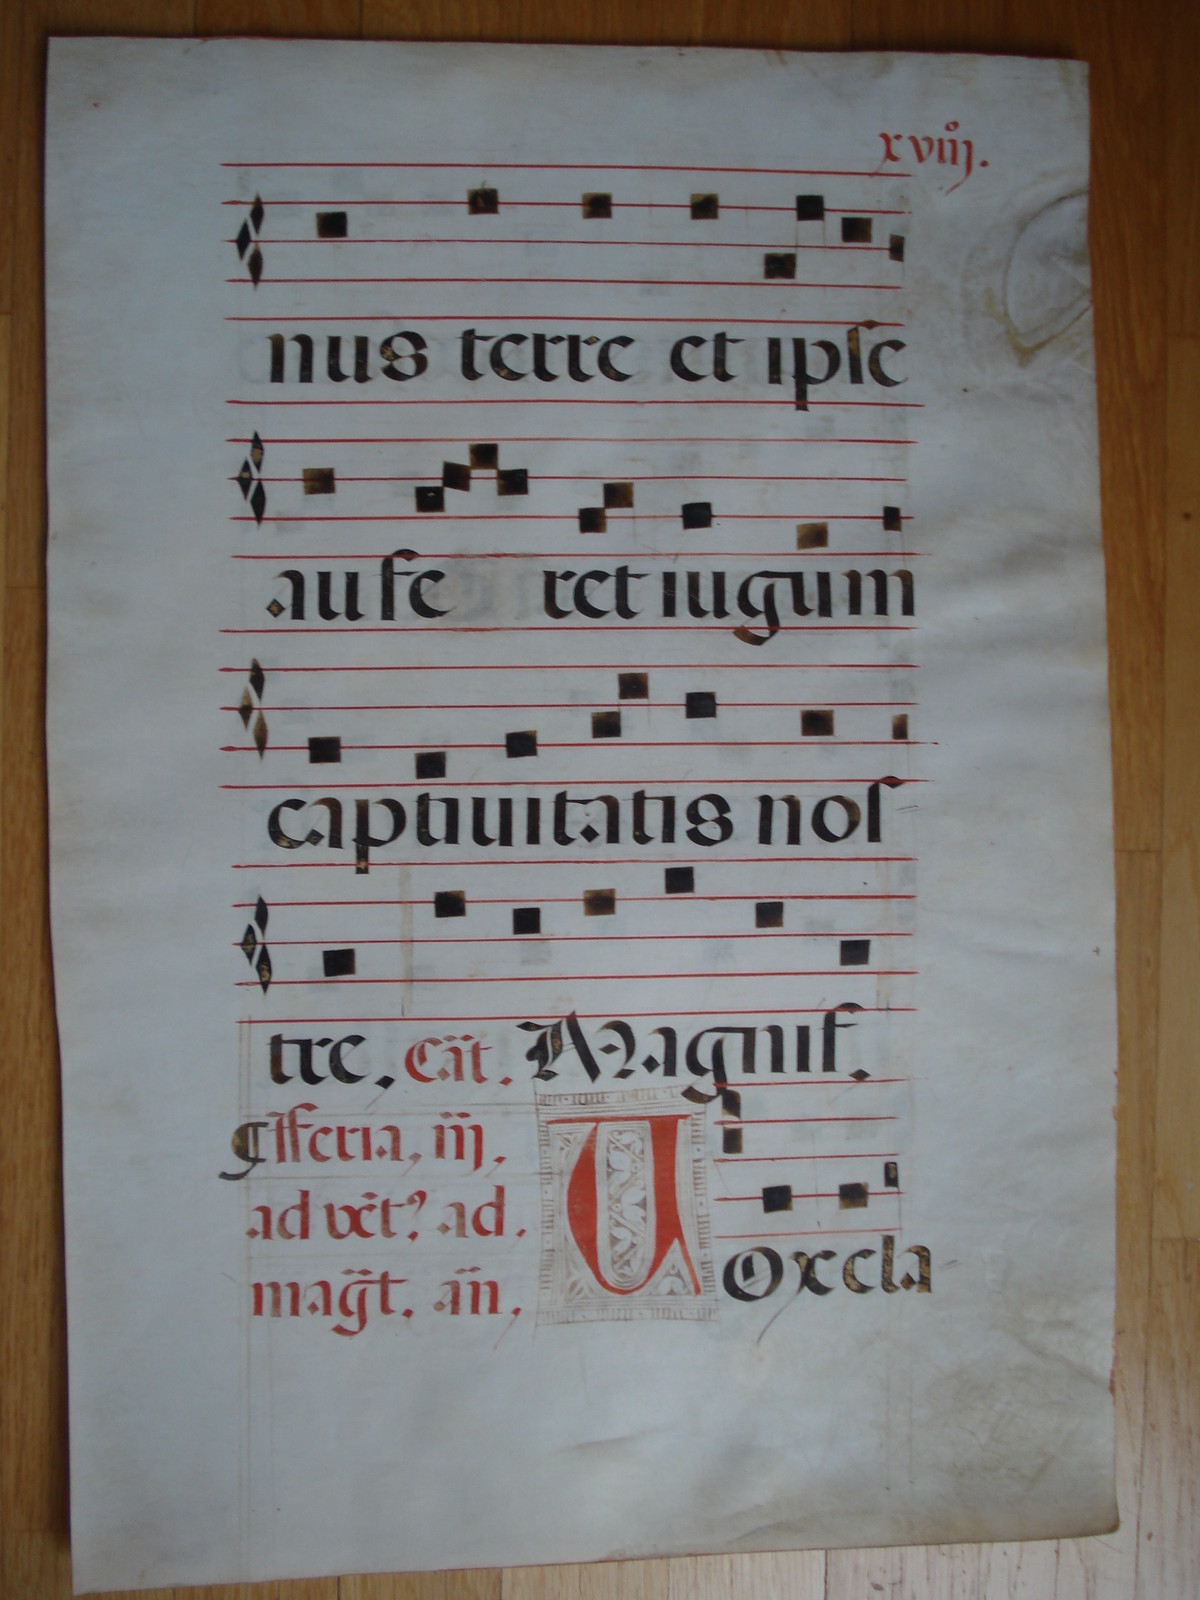 xviiij.
nus terre et ipſe
aufe ret iugum
captiuitatis noſ
tre, Cãt. Magnif.
¶ fferia, iij,
ad vẽt? ad.
mag̃t. añ,
Uoxcla